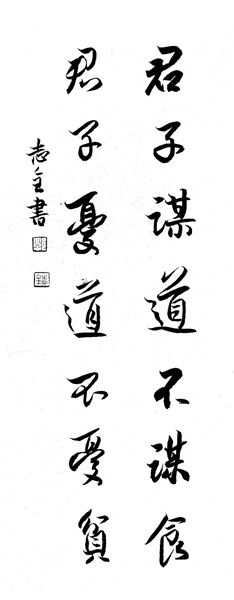 君子謀道不謀食
君子憂道不憂貧
志全書